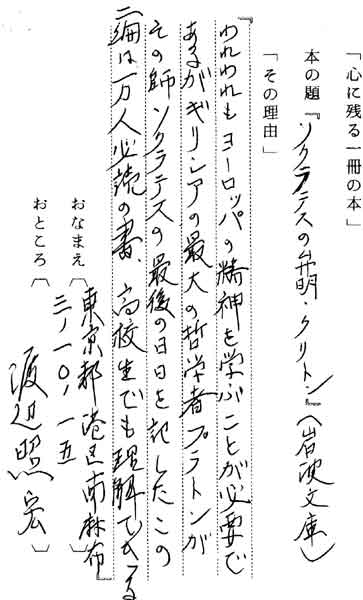 「心に残る一冊の本」
本の題『ソクラテスの弁明・クリトン』(岩波文庫)
「その理由」
『われわれもヨーロッパの精神を学ぶことが必要で
あるがギリシアの最大の哲学者プラトンが
その師ソクラテスの最後の日日を記したこの
二編は一万人必読の書、高校生でも理解できる』
おなまえ〔渡辺照宏〕
おところ〔東京都港区南麻布
三ノ一〇ノ一五〕